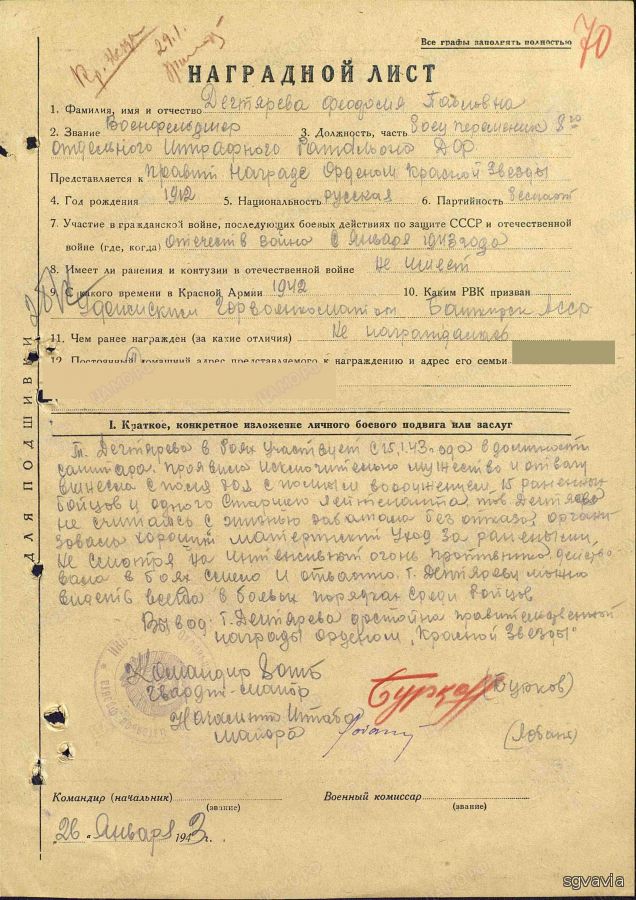 Все графы заполнять полностью
70
Кр. Звезда
29.1.
НАГРАДНОЙ ЛИСТ
1. Фамилия, имя и отчество Дегтярева Феодосия Павловна
2. Звание Военфельдшер 3. Должность, часть боец переменник 8го
отдельного Штрафного Батальона ДФ
Представляется к правит Награде Орденом Красной Звезды
4. Год рождения 1912 5. Национальность русская 6. Партийность беспарт
7. Участие в гражданской войне, последующих боевых действиях по защите СССР и отечественной
войне (где, когда) отечеств война с Января 1943 года
8. Имеет ли ранения и контузии в отечественной войне не имеет
9. С какого времени в Красной Армии 1942 10. Каким РВК призван
Горвоенкоматом Башкирск АССР
11. Чем ранее награжден (за какие отличия) Не награждалась
12. Постоянный домашний адрес представляемого к награждению и адрес его семьи
I. Краткое, конкретное изложение личного боевого подвига или заслуг
Т. Дегтярева в боях участвует с 15.1.43 года в должности
санитара. Проявила исключительно мужество и отвагу
вынесла с поля боя с полным вооружением 15 раненных
бойцов и одного Старшего Лейтенанта тов Дегтярева
не считаясь с жизнью работала без отказа, органи
зовала хороший материнский уход за ранеными,
Не смотря на интенсивный огонь противника действо
вала в боях смело и отважно. Т. Дегтяреву можно
видеть всегда в боевых порядках среди бойцов
Вывод: Т. Дегтярева достойна правительственной
награды орденом „Красной Звезды"
Командир 8ОШБ
гвардии-майор Бурков (Бурков)
Начальник Штаба
майор
ДЛЯ ПОДШИВКИ
Командир (начальник) Военный комиссар
(звание) (звание)
„26" Января 1943 г.
sgvavia